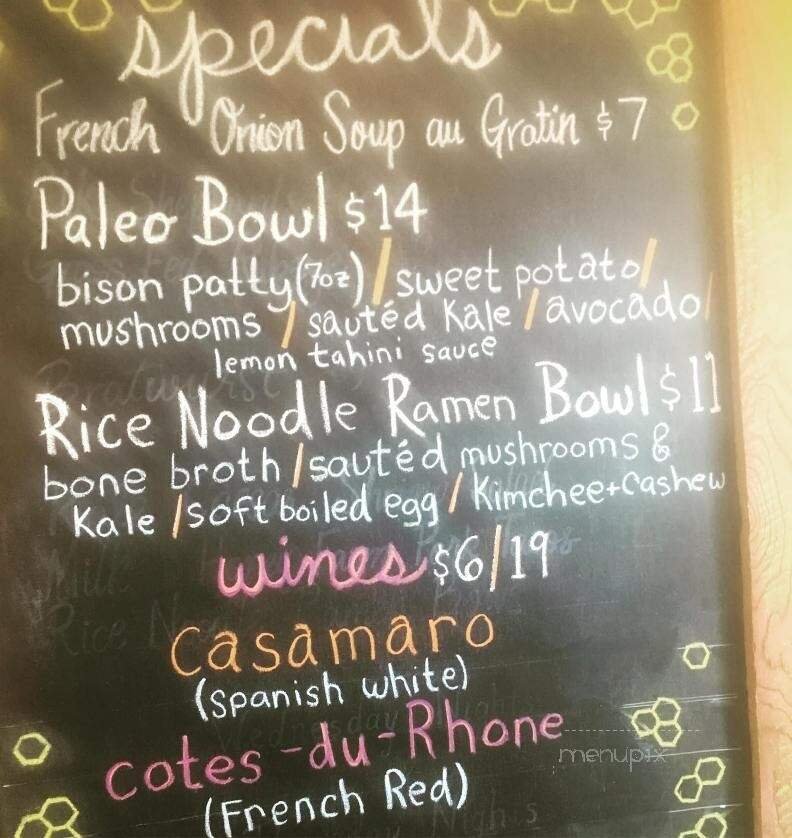 specials
French Onion Soup au Gratin $7
Paleo Bowl $14
bison patty (7oz) / sweet potato /
mushrooms / sautéd Kale / avocado /
lemon tahini sauce
Rice Noodle Ramen Bowl $11
bone broth / sautéd mushrooms &
Kale / soft boiled egg / Kimchee + Cashew
wines $6/19
Casamaro
(Spanish white)
cotes-du-Rhone
menupix
(French Red)